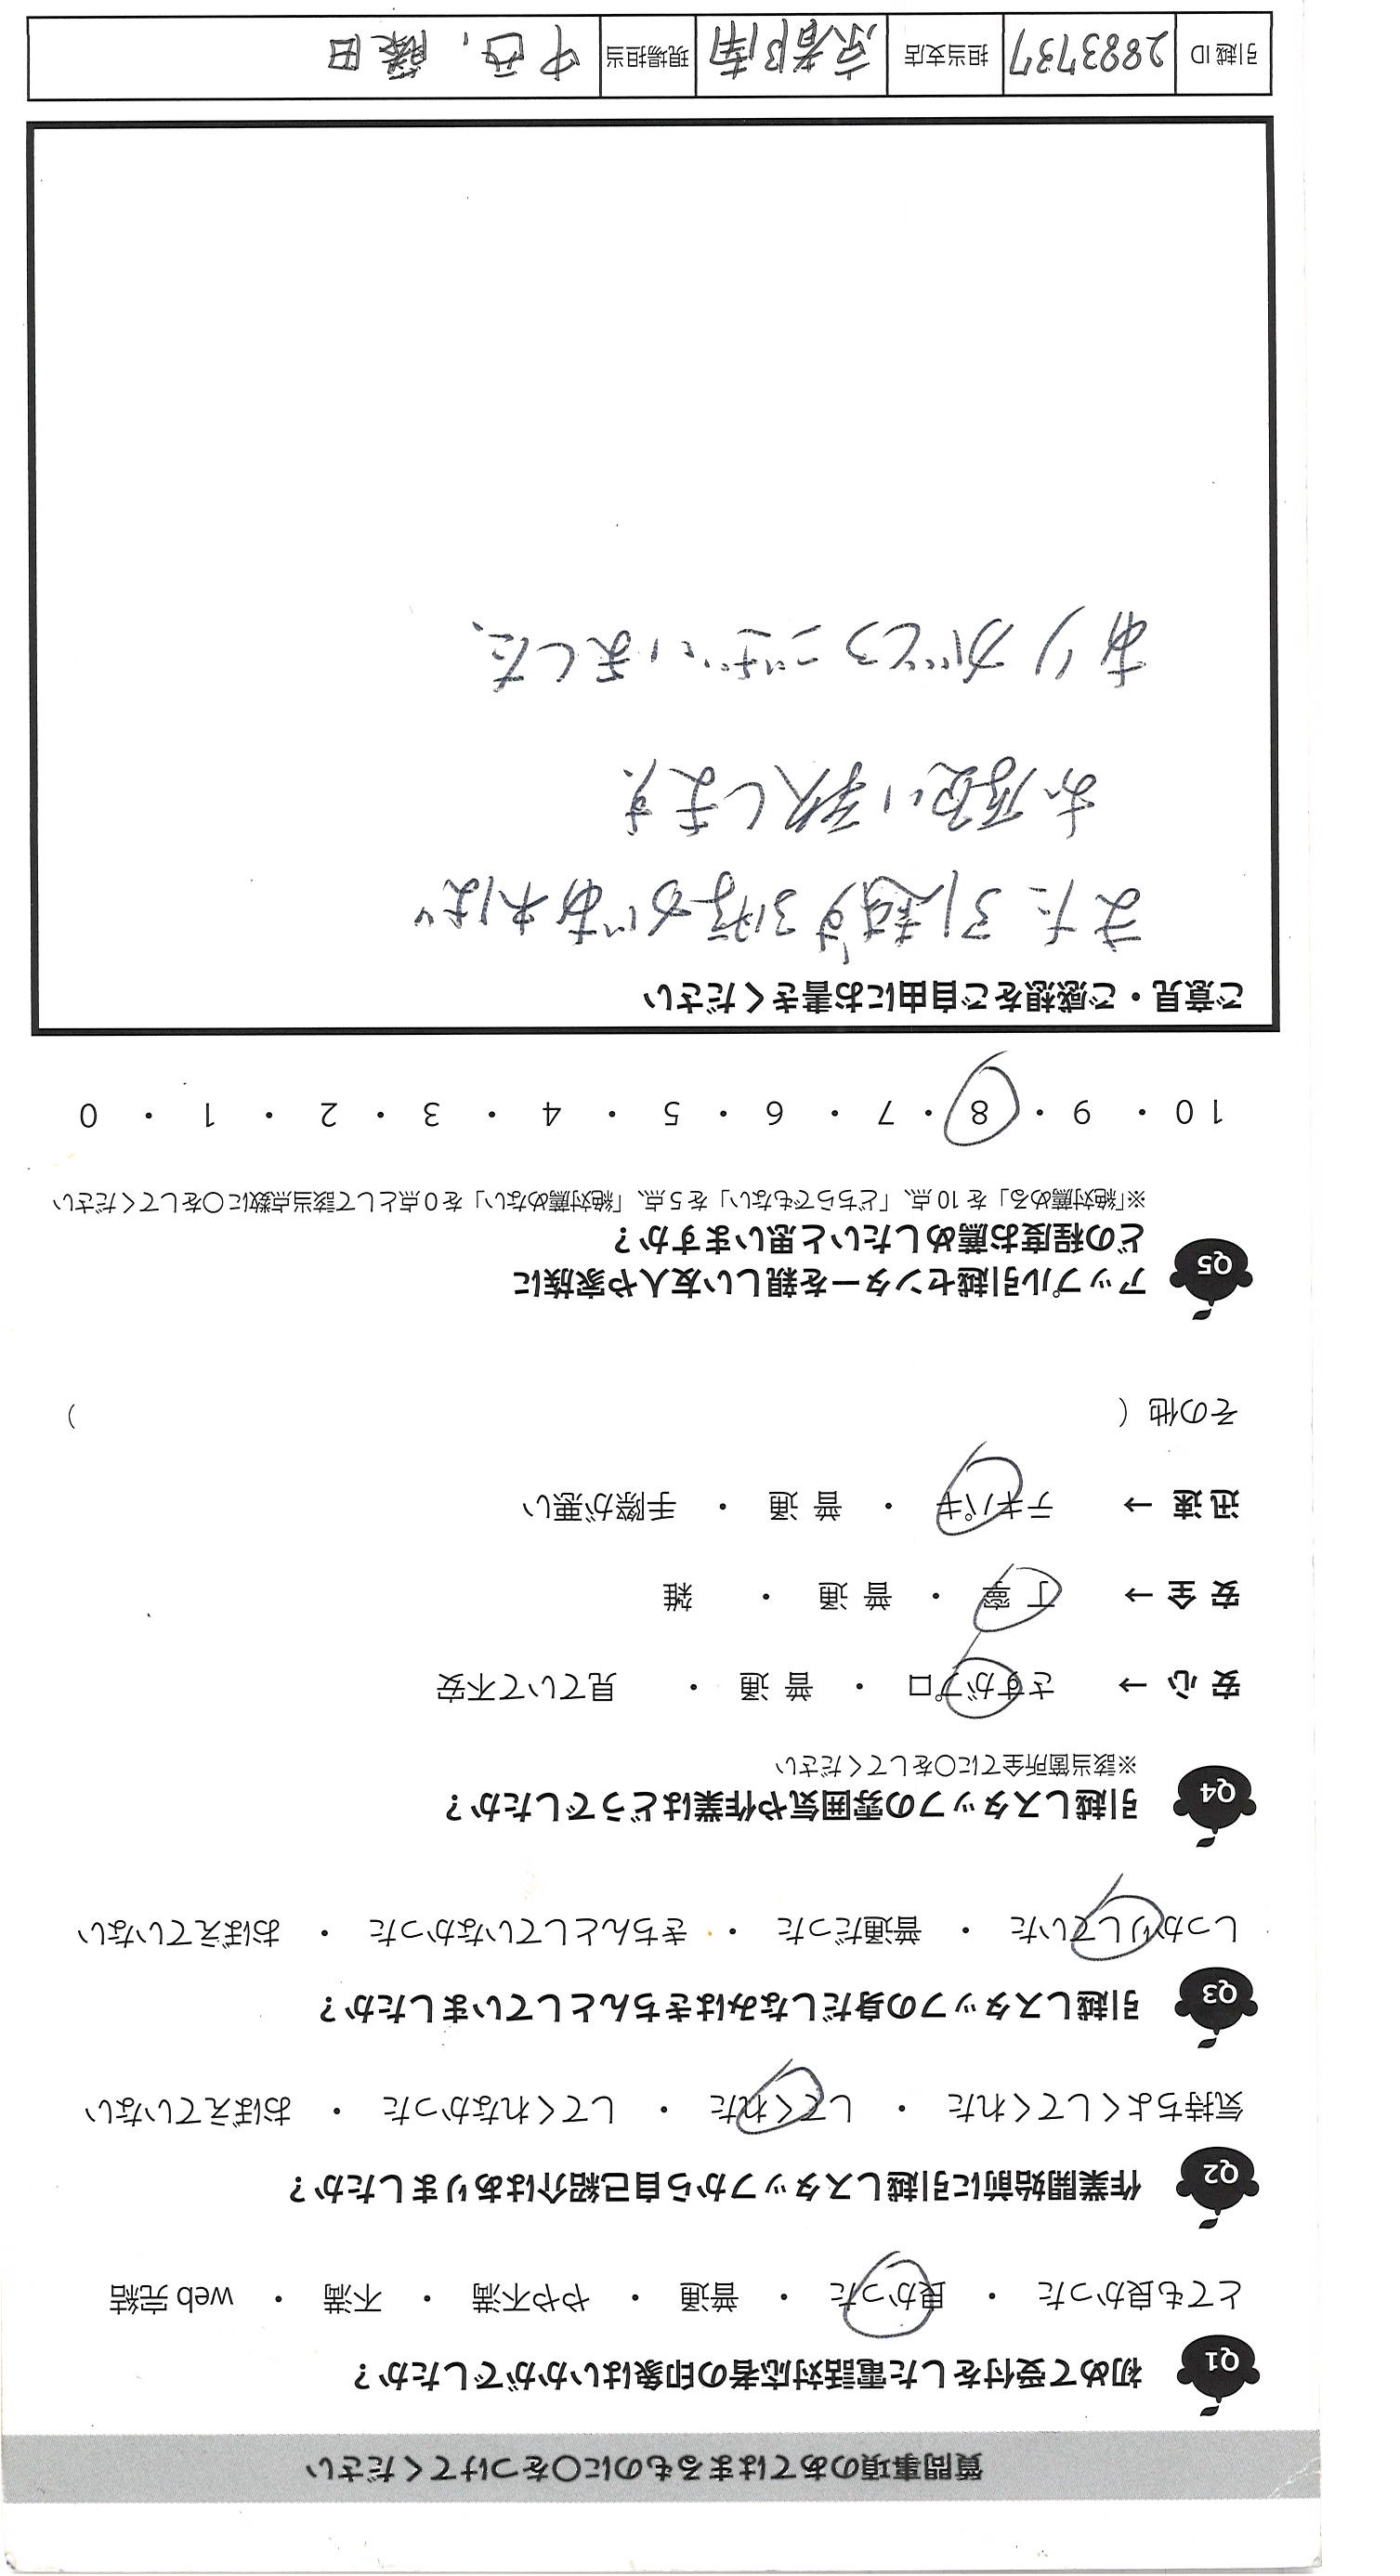 質問事項のあてはまるものに〇をつけてください
Q1 初めて受付をした電話対応者の印象はいかがでしたか？
とても良かった ・ 良かった ・ 普通 ・ やや不満 ・ 不満 ・ web 完結
Q2 作業開始前に引越しスタッフから自己紹介はありましたか？
気持ちよくしてくれた ・ してくれた ・ してくれなかった ・ おぼえていない
Q3 引越しスタッフの身だしなみはきちんとしていましたか？
しっかりしていた ・ 普通だった ・ きちんとしていなかった ・ おぼえていない
Q4 引越しスタッフの雰囲気や作業はどうでしたか？
※該当箇所全てに〇をしてください
安 心 → さすがプロ ・ 普 通 ・ 見ていて不安
安 全 → 丁 寧 ・ 普 通 ・ 雑
迅 速 → テキパキ ・ 普 通 ・ 手際が悪い
その他（ ）
Q5 アップル引越センターを親しい友人や家族に
どの程度お薦めしたいと思いますか？
※「絶対薦める」を 10 点、「どちらでもない」を 5 点、「絶対薦めない」を 0 点として該当点数に〇をしてください
10 ・ 9 ・ 8 ・ 7 ・ 6 ・ 5 ・ 4 ・ 3 ・ 2 ・ 1 ・ 0
ご意見・ご感想をご自由にお書きください
また引越する際があれば
お願い致します
ありがとうございました、
引越 ID 2883737 担当支店 京都南 現場担当 中西, 藤田